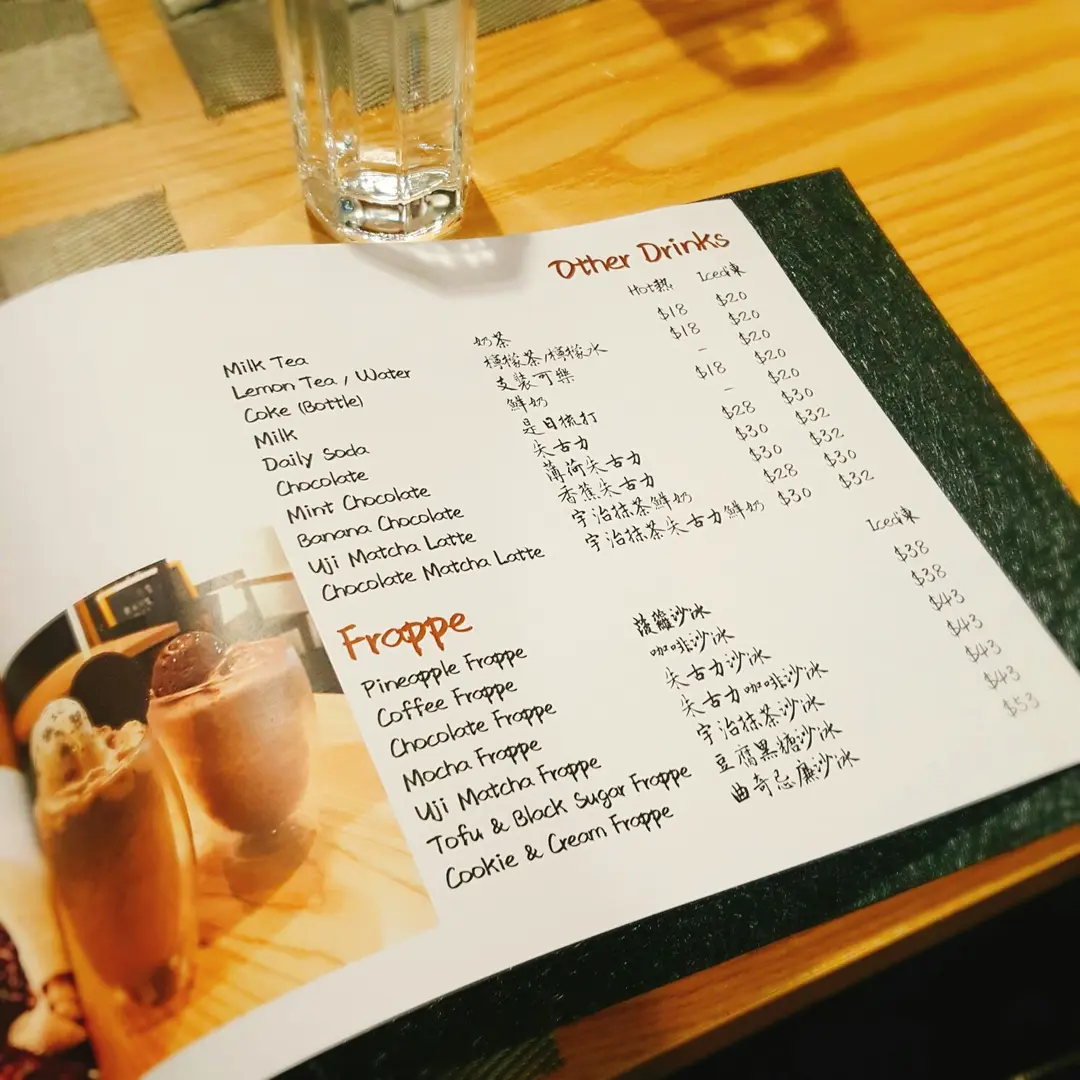 Other Drinks
Hot熱 Iced凍
Milk Tea 奶茶 $18 $20
Lemon Tea / Water 檸檬茶/檸檬水 $18 $20
Coke (Bottle) 支裝可樂 - $20
Milk 鮮奶 $18 $20
Daily Soda 是日梳打 - $20
Chocolate 朱古力 $28 $30
Mint Chocolate 薄荷朱古力 $30 $32
Banana Chocolate 香蕉朱古力 $30 $32
Uji Matcha Latte 宇治抹茶鮮奶 $28 $30
Chocolate Matcha Latte 宇治抹茶朱古力鮮奶 $30 $32
Frappe Iced凍
Pineapple Frappe 菠蘿沙冰 $38
Coffee Frappe 咖啡沙冰 $38
Chocolate Frappe 朱古力沙冰 $43
Mocha Frappe 朱古力咖啡沙冰 $43
Uji Matcha Frappe 宇治抹茶沙冰 $43
Tofu & Black Sugar Frappe 豆腐黑糖沙冰 $43
Cookie & Cream Frappe 曲奇忌廉沙冰 $53